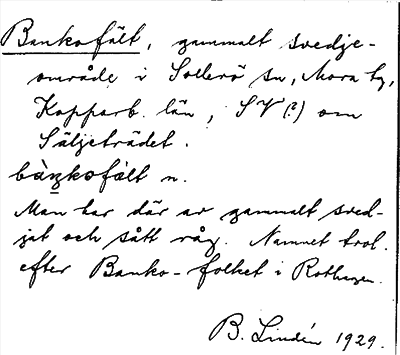 Bankofält, gammalt svedje-
område i Sollerö sn, Mora tg,
Kopparb. län, SV (?) om
Säljeträdet.
bàŋkofàlt n.
Man har där av gammalt sved-
jat och sått råg. Namnet trol.
efter Banko-folket i Rothagen.
B. Lindén 1929.